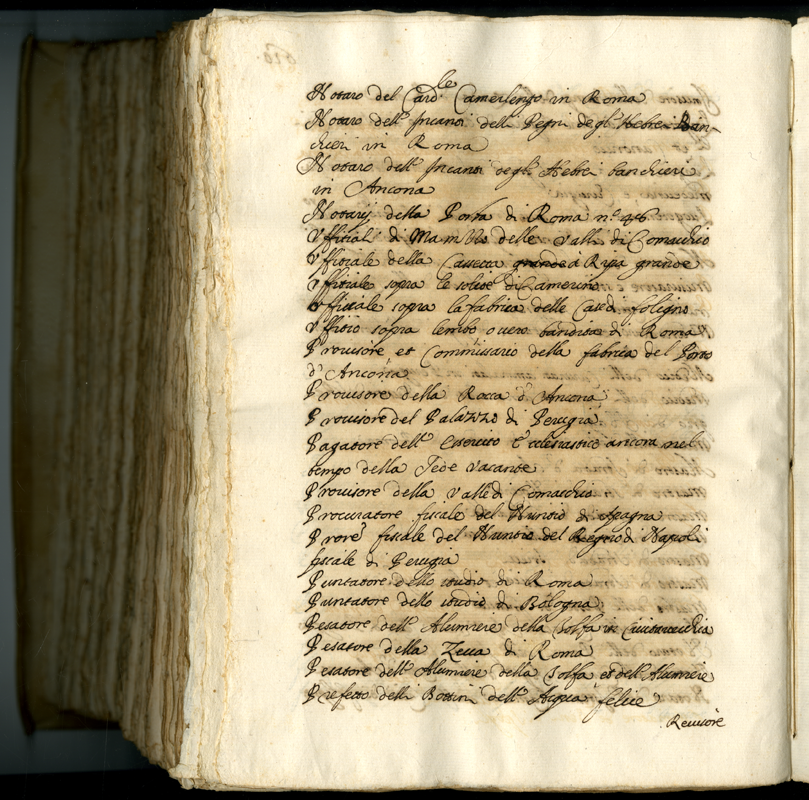 Notaro del Card.le Camerlengo in Roma
Notaro dell' Incanti delli Pegni degl' Hebrei Ban-
chieri in Roma
Notaro dell' Incanti degl' Hebrei banchieri
in Ancona
Notarij della Porta di Roma n.o
Vffitiali di delle Valli di Comacchio
Vffitiale della Cassetta grande à Ripa grande
Vffitiale sopra le solite di Camerino
Vffitiale sopra la fabrica delle Case di foligno
Vffitio sopra lembo ouero bandita di Roma
Prouisore et Commissario della fabrica del Porto
d'Ancona
Prouisore della Rocca d'Ancona
Prouisore del Palazzo di Perugia
Pagatore dell' Essercito Ecclesiastico ancora nel
tempo della Sede Vacante
Prouisore della Valle di Comacchio
Procuratore fiscale del Nuntio di Spagna
Prore fiscale del Nuntio del Regno di Napoli
fiscale di Perugia
Puntatore dello studio di Roma
Puntatore dello studio di Bologna
Pesatore dell' Alumiere della Tolfa in Ciuitauecchia
Pesatore della Zecca di Roma
Pesatore dell' Alumiere della Tolfa et dell' Alumiere
Prefetto delli Bottini dell' Acqua felice
Reuisore